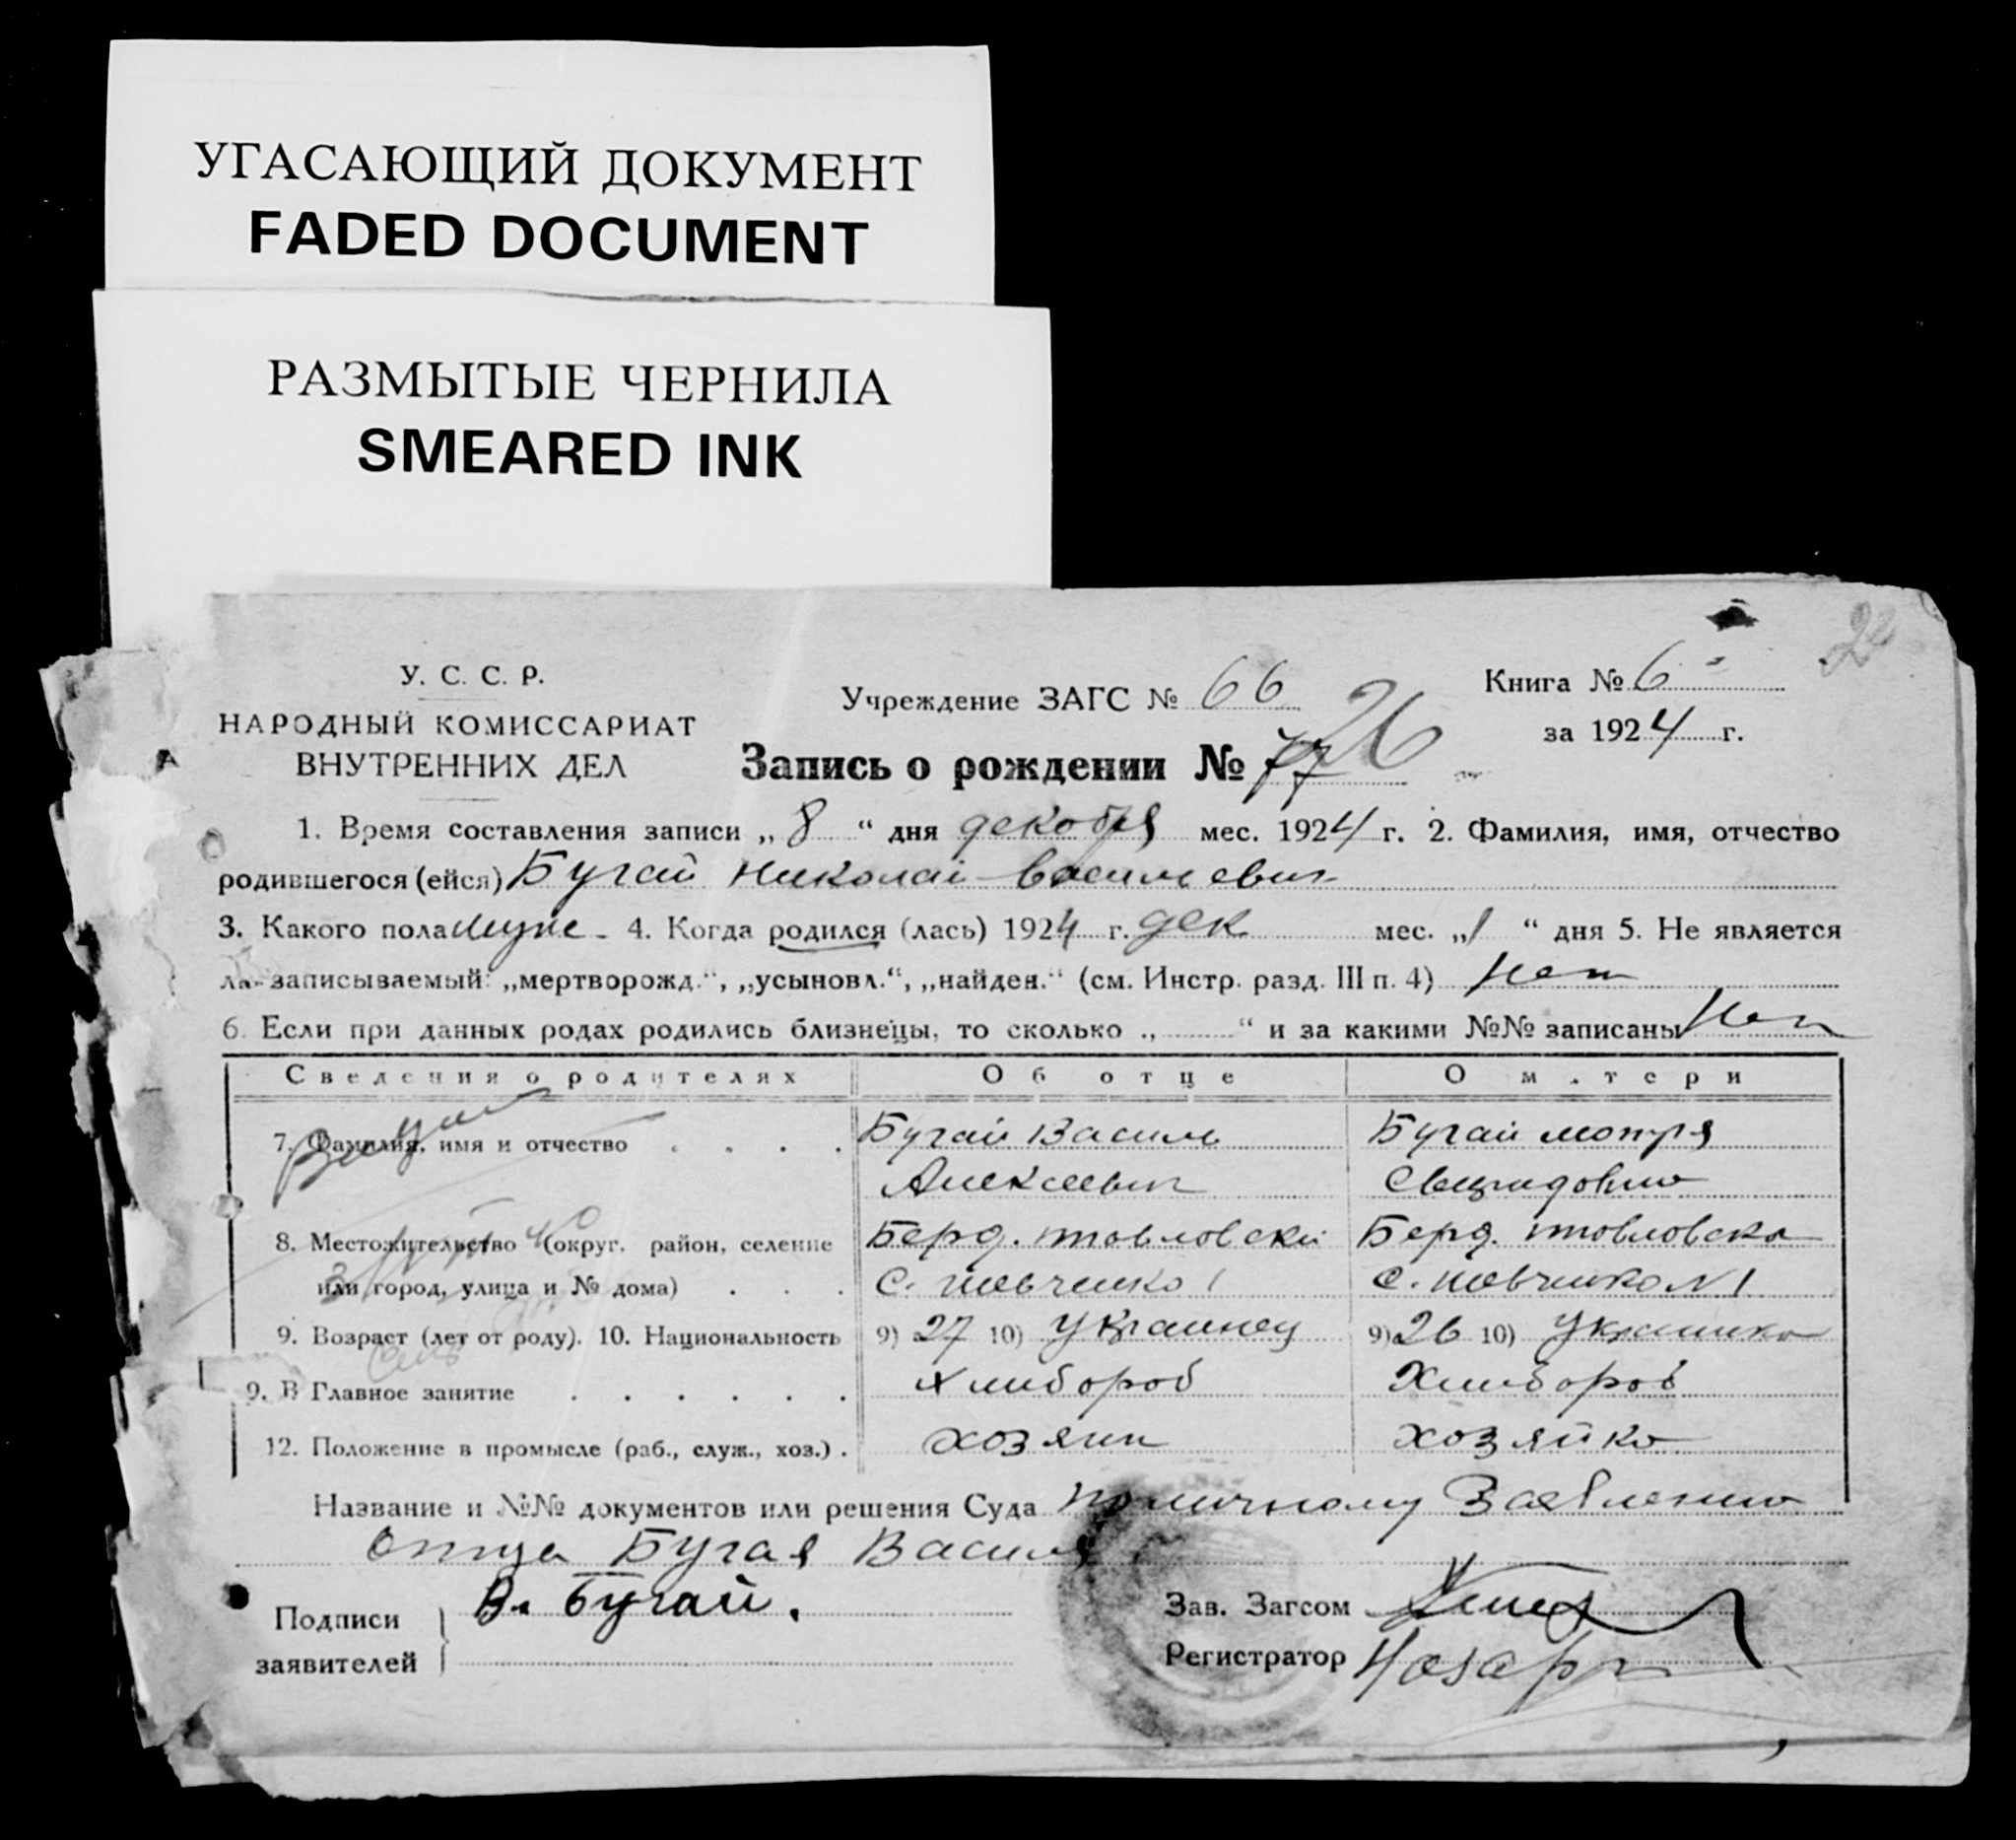 УГАСАЮЩИЙ ДОКУМЕНТ
FADED DOCUMENT
РАЗМЫТЫЕ ЧЕРНИЛА
SMEARED INK
У. С. С. Р.
НАРОДНЫЙ КОМИССАРИАТ
ВНУТРЕННИХ ДЕЛ
Учреждение ЗАГС № 66
Книга № 6
за 1924 г.
Запись о рождении № 77 26
1. Время составления записи „ 8 “ дня декобря мес. 1924 г. 2. Фамилия, имя, отчество
родившегося (ейся) Бугай Николай Васильевич
3. Какого пола муже. 4. Когда родился (лась) 1924 г. дек мес. „1 “ дня 5. Не является
ли записываемый: „мертворожд.“, „усыновл.“, „найден.“ (см. Инстр. разд. III п. 4) Нет
6. Если при данных родах родились близнецы, то сколько „ “ и за какими №№ записаны Нет
Сведения о родителях Об отце О матери
7. Фамилия, имя и отчество . . . . Бугай Василь Бугай Мотря
Алексеевич
8. Местожительство (округ, район, селение Берд. Бepд.
или город, улица и № дома) . . . С. Шевченко 1 С. Шевченко N 1
9. Возраст (лет от роду). 10. Национальность 9) 27 10) Украинец 9) 26 10) Украинка
9. В Главное занятие . . . . . . Хлибороб Хлибороб
12. Положение в промысле (раб., служ., хоз.) . хозяин хозяйка
Название и №№ документов или решения Суда По личному Заявлению
Отца Бугая Василя
Подписи В. Бугай.
заявителей
Зав. Загсом
Регистратор